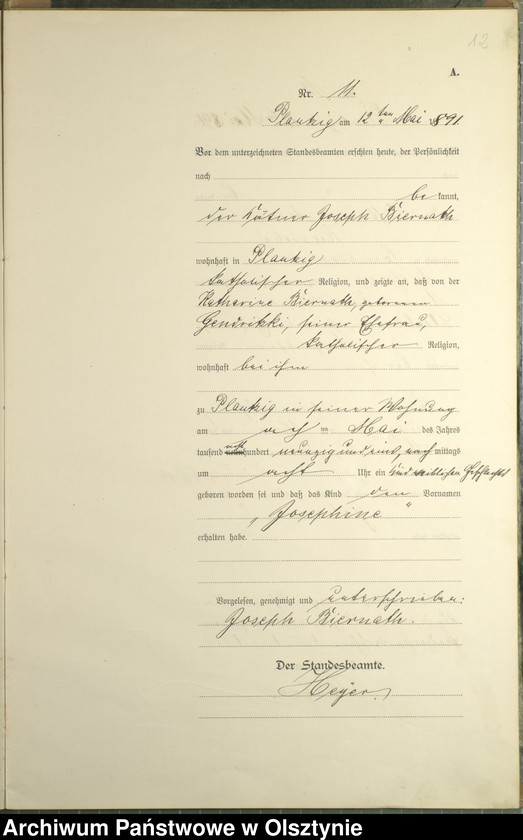 12
A.
Nr. 11.
Plautzig am 12ten Mai 1891
Vor dem unterzeichneten Standesbeamten erschien heute, der Persönlichkeit
nach
bekannt,
der Kätner Joseph Biernath
wohnhaft in Plautzig
katholischer Religion, und zeigte an, daß von der
Katharine Biernath, geborenen
Gendritzki, seiner Ehefrau,
katholischer Religion,
wohnhaft bei ihm
zu Plautzig in seiner Wohnung
am ten Mai des Jahres
tausend acht hundert neunzig und eins, nach mittags
um acht Uhr ein Kind weiblichen Geschlechts
geboren worden sei und daß das Kind den Vornamen
„Josephine“
erhalten habe.
Vorgelesen, genehmigt und unterschrieben:
Joseph Biernath.
Der Standesbeamte.
Heyer.
Archiwum Państwowe w Olsztynie